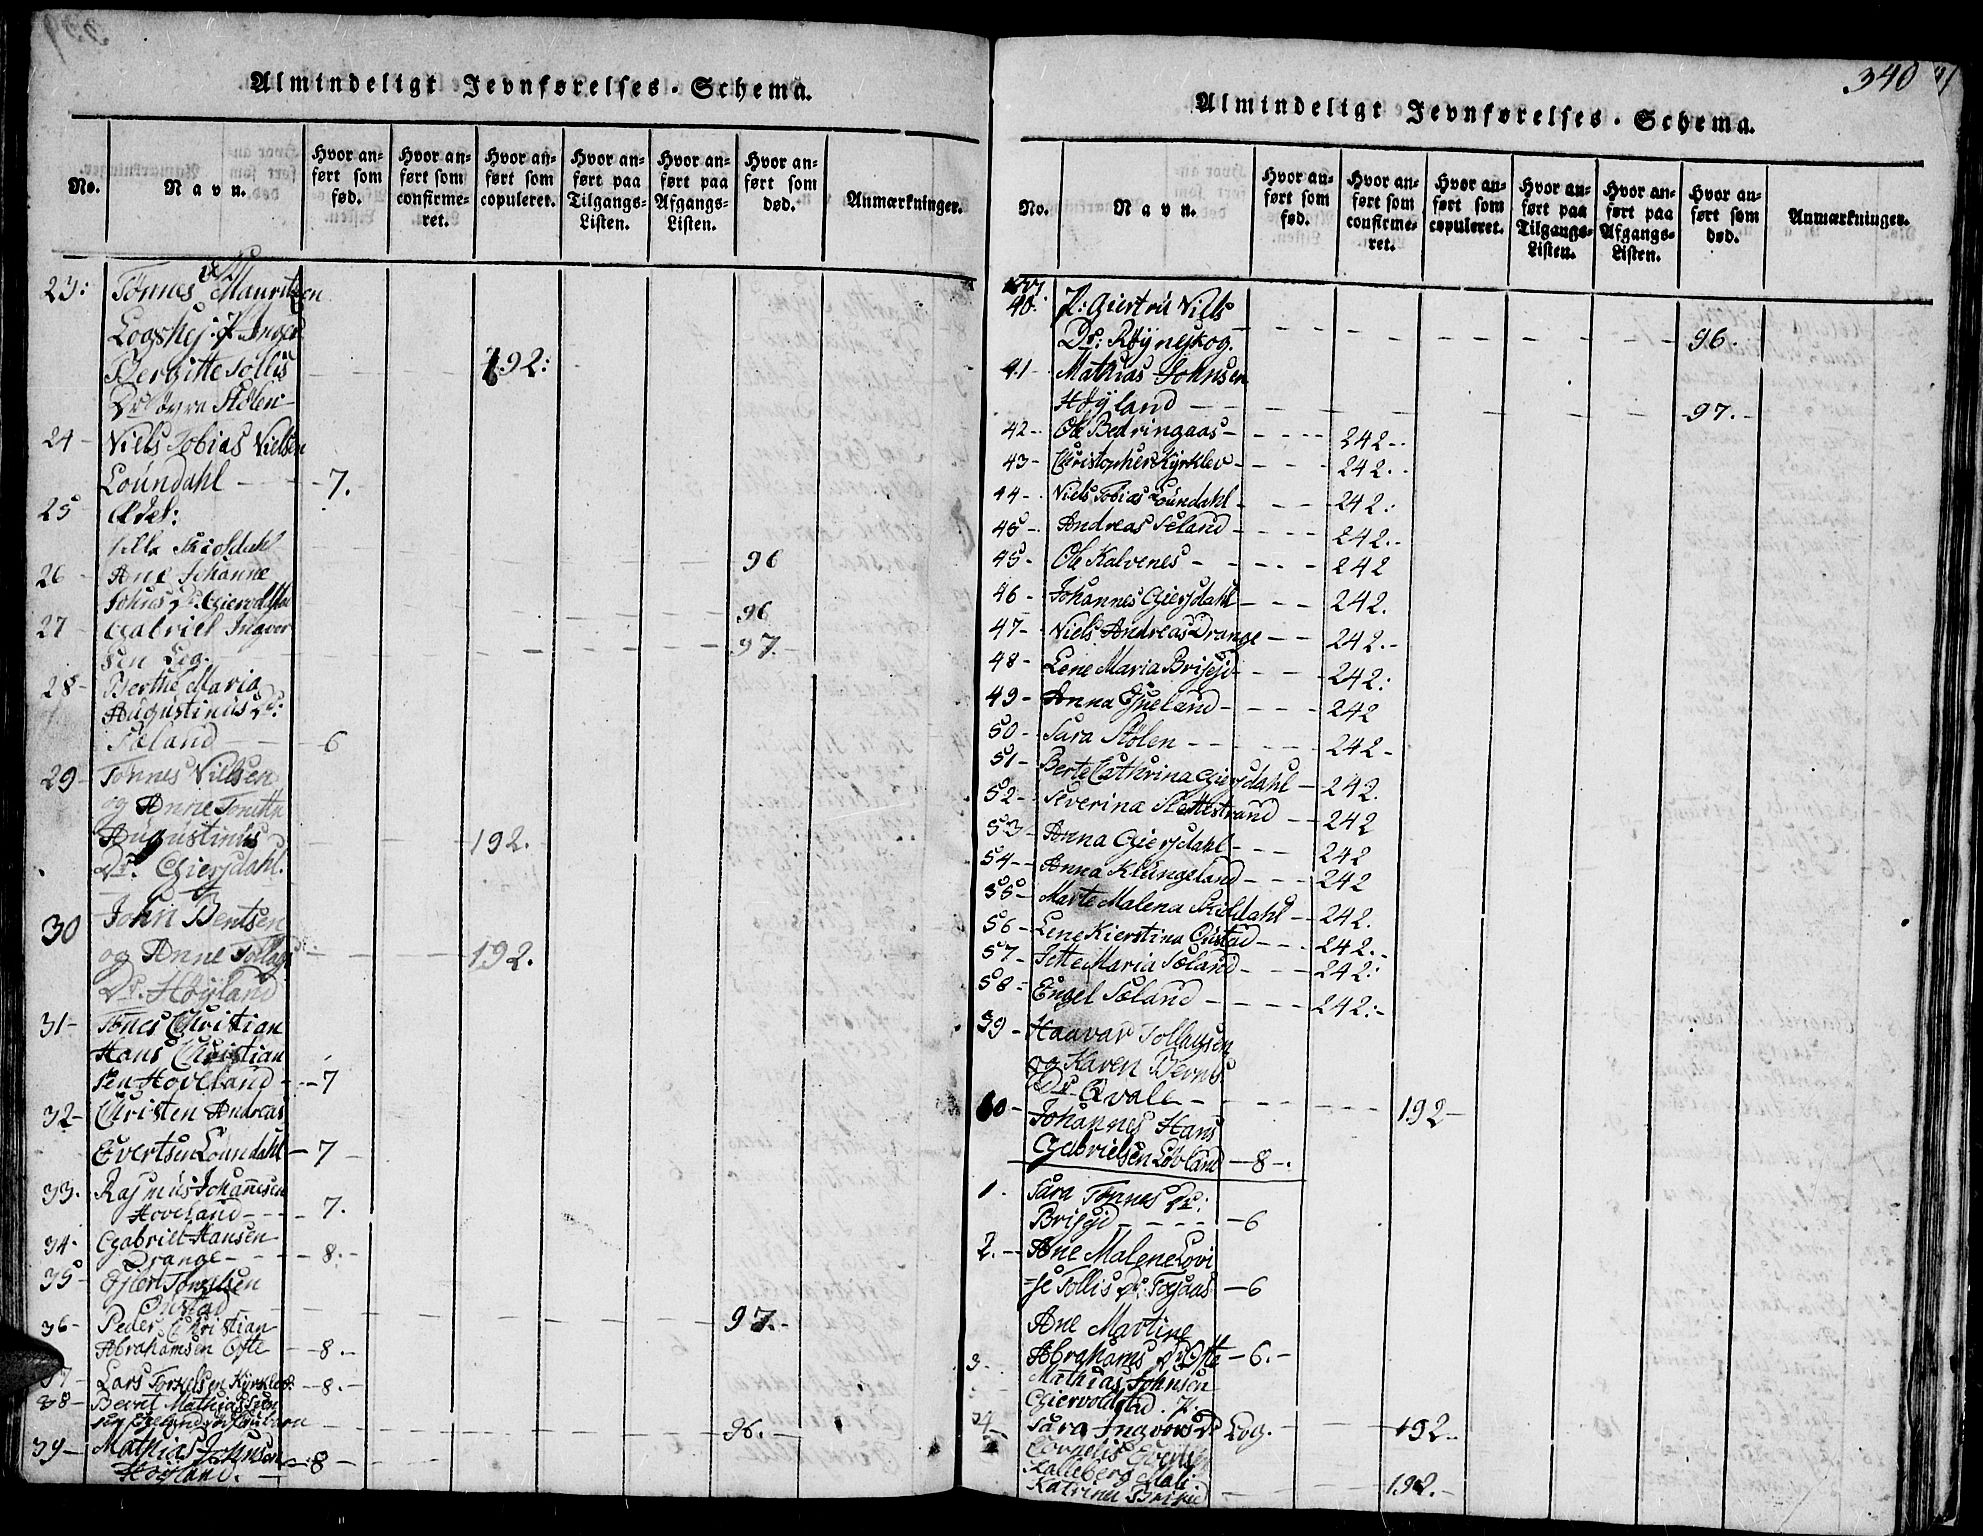 Almindeligt Jevnførelses-Schema.
No. Navn. Hvor anført som fød. Hvor anført som confirmeret. Hvor anført som copuleret. Hvor anført paa Tilgangs-Listen. Hvor anført paa Afgangs-Listen. Hvor anført som død. Anmærkninger.
23: Tønnes Mauritzen
Bergitte Tollis 192:
Dr øvre Stølen
24 Niels Tobias Nielsen
Loundahl 7.
25
Skioldahl 96
26 Ane Johanne
Johns Dr. 96
27 Gabriel Ingver
sen Eeg. 97.
28 Berthe Maria
Augustinus Dr:
Sæland 6
29 Tønnes Nielsen
og Anne
Augustinus 192.
Dr. Giersdahl.
30 John Bentsen
og Anne Tollags 192.
Dr. Høyland
31 Tønes Christian
Hans Christian
sen Hoveland 7
32 Christen Andreas
Evertsen Loundahl 7
33. Rasmus Johannesen
Hoveland 7.
34. Gabriel Hansen
Drange 8.
35
Oustad 97.
36 Peder Christian
Abrahamsen Ofte 8.
37 Lars Torkelsen Kyrklev 8.
38 Bernt Mathias
96.
39 Mathias Johnsen 8
Høyland.
340
Almindeligt Jevnførelses-Schema.
No. Navn. Hvor anført som fød. Hvor anført som confirmeret. Hvor anført som copuleret. Hvor anført paa Tilgangs-Listen. Hvor anført paa Afgangs-Listen. Hvor anført som død. Anmærkninger.
40. Giertru Niels
Dr: Røyneskog. 96.
41 Mathias Johnsen
Høyland 97.
42 Ole Bedringaas 242
43 Christopher Kyrklev 242.
44 Niels Tobias Loundahl 242.
45 Andreas Seland 242.
45 Ole Kalvenes 242
46 Johannes Giersdahl 242.
47 Niels Andreas Drange 242.
48 Lene Maria Brisejd 242:
49 Anna Egeland 242
50 Sara Stølen 242
51 Berte Cathrina Giersdahl 242.
52 Severina Slettestrand 242
53 Anna Giersdahl 242
54 Anna Klungeland 242
55 Marte Malena Skioldahl 242.
56 Lene Kierstina Oustad 242.
57 Jette Maria Sæland 242:
58 Engel Sæland 242:
39 Haavar Tollagsen
og Karen Bernts
Dr. Qvale 192
60 Johannes Hans
Gabrielsen Lovland 8.
1. Sara Tønnes Dr:
Brisejd 6
2. Ane Malene Lovi
se Tollis Dr. Fogaas 6
Ane Martine
3 Abrahams Dr Ofte 6.
Mathias Johnsen
Giervoldstad.
Sara Ingvors Dr Eeg. 192.
Cornelis Evertsen
Kalleberg Mali
Katrina Brisejd 192.